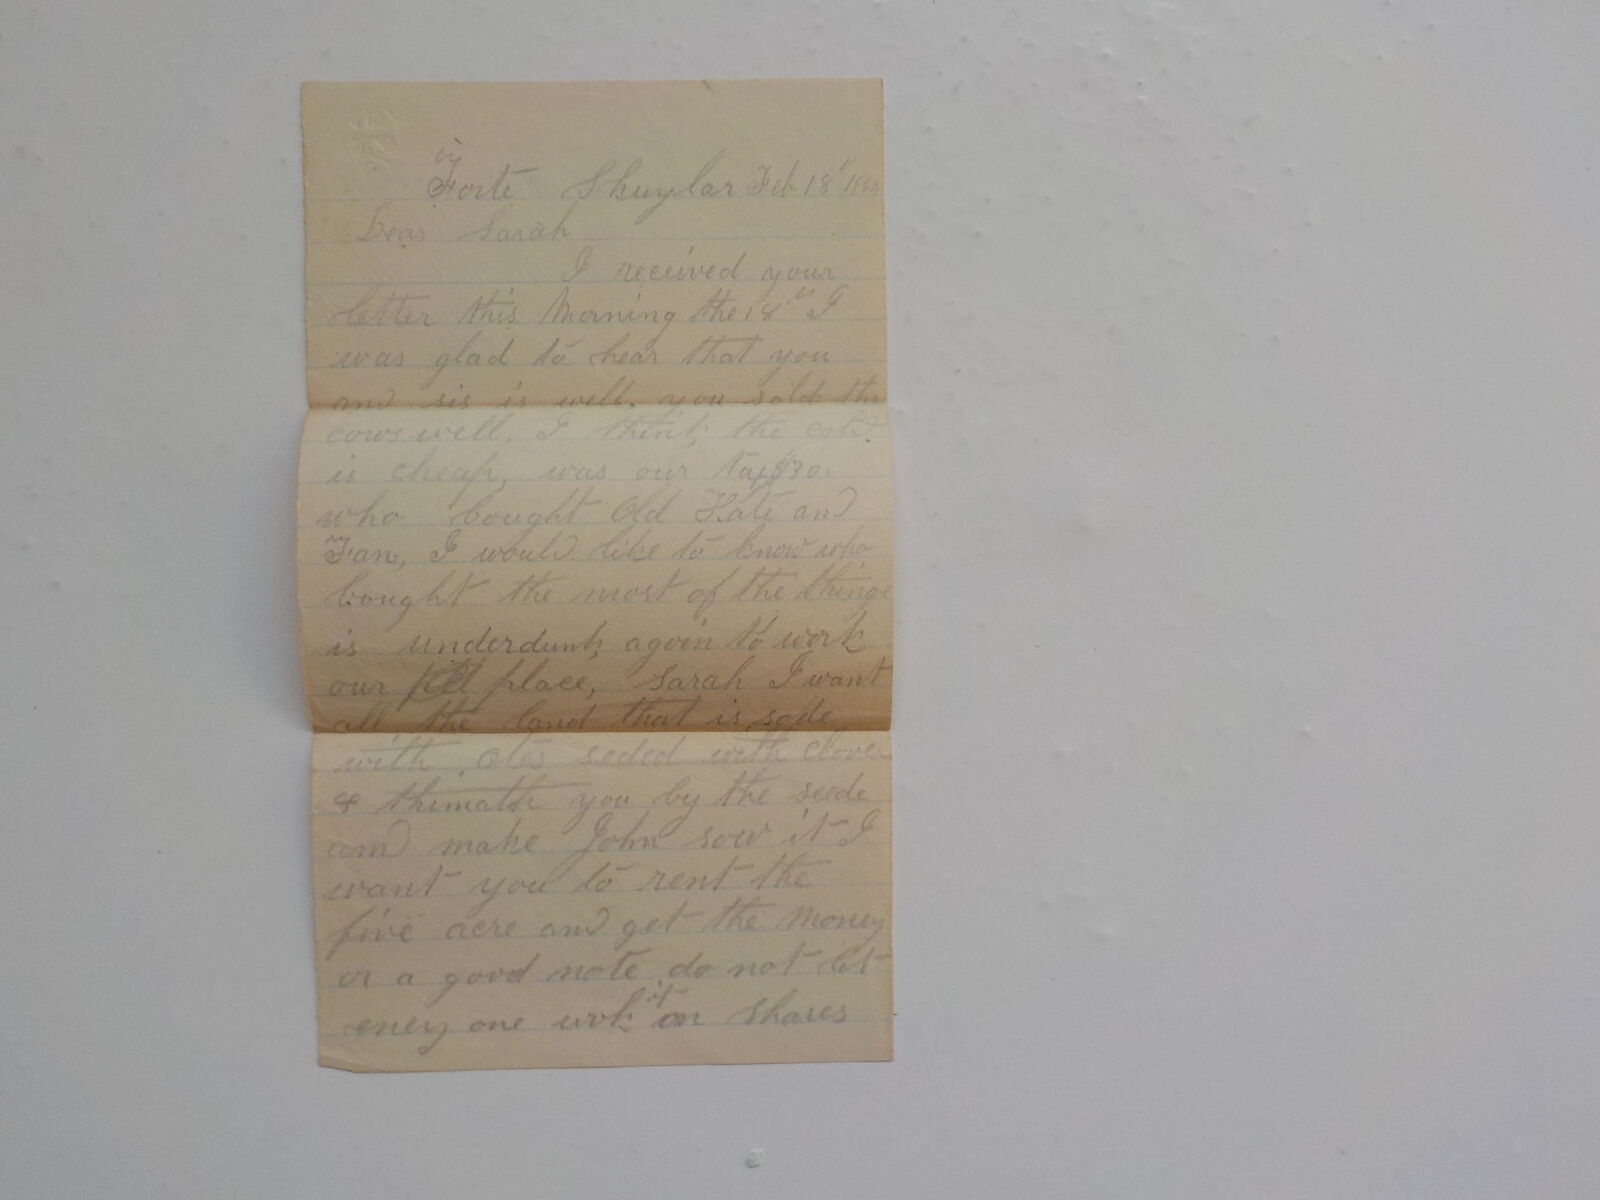 in
Forte Shuylar Feb 18
Dear Sarah
I received your
letter this Morning the 18th I
was glad to hear that you
and sis is well. you sold the
cows well, I think the colt
is cheap, was our tax
who bought Old Kate and
Fan, I would like to know who
bought the most of the things
is underdunk agoin to work
our place, Sarah I want
all the land that is sode
with otes seeded with clover
& thimath you by the seede
and make John sow it I
want you to rent the
five acre and get the Money
or a good note do not let
eney one work it on shares